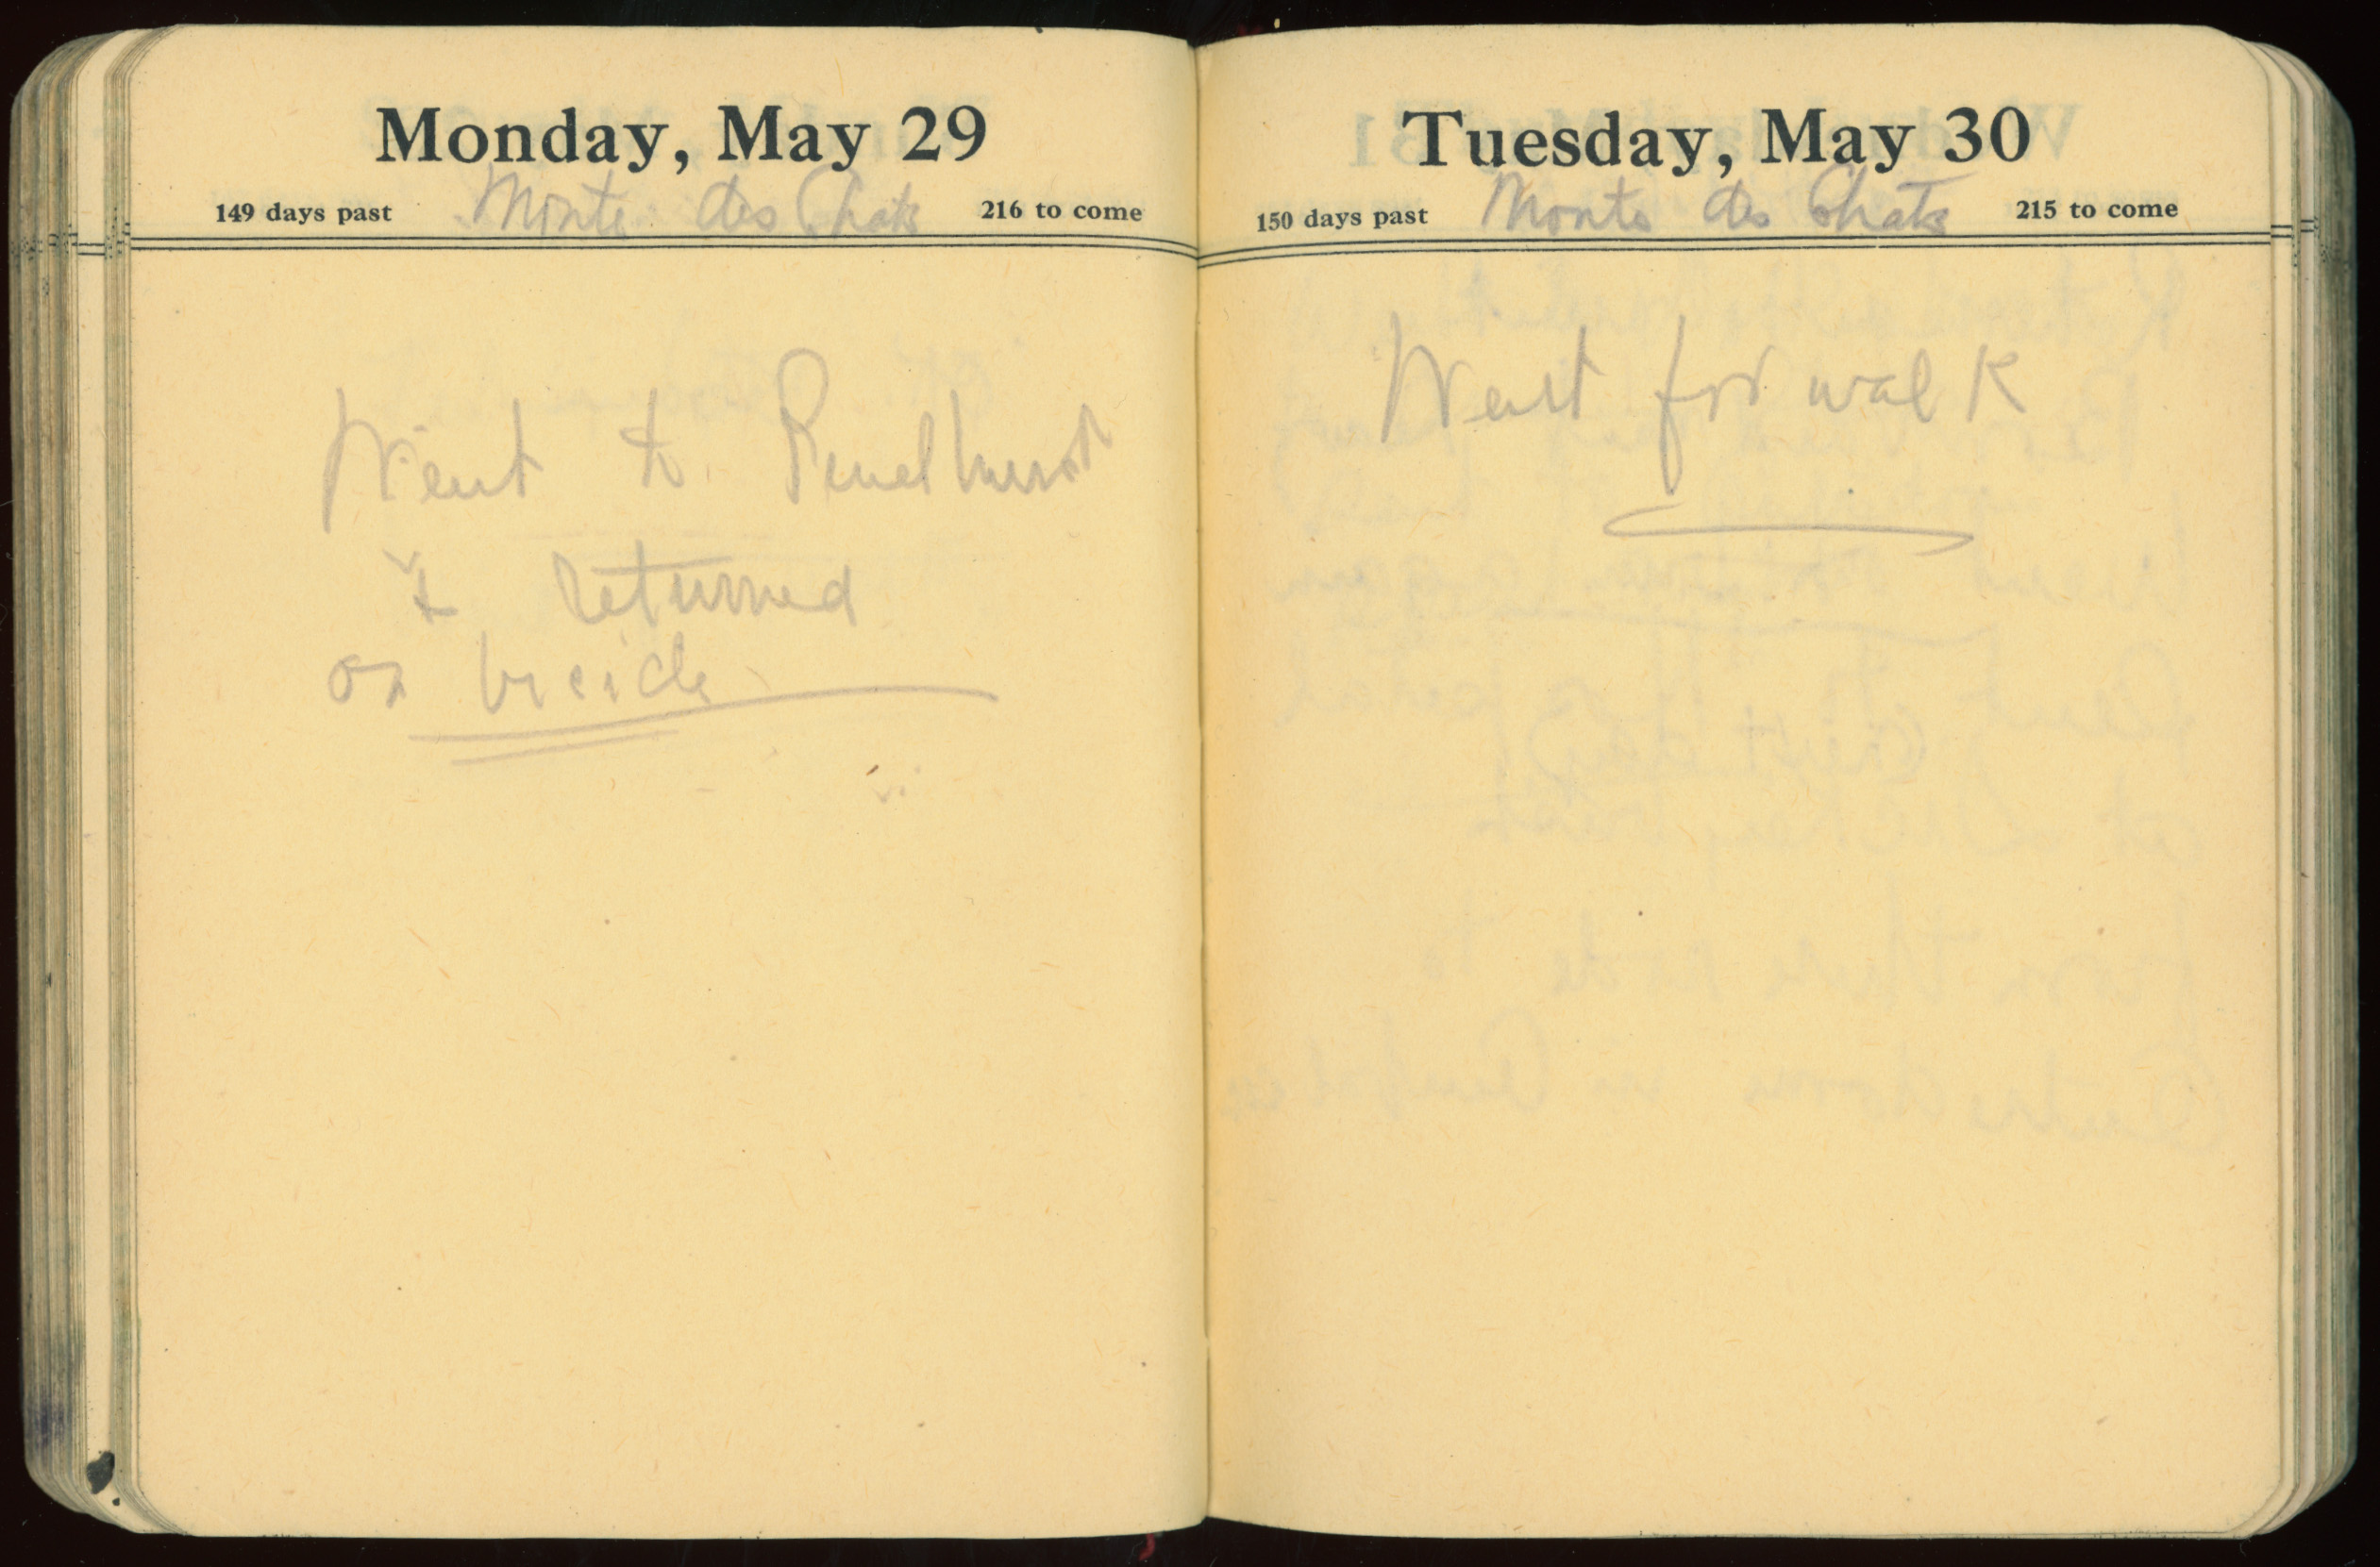 Monday, May 29
149 days past Monte des Chats 216 to come
Went to
& returned
on
Tuesday, May 30
150 days past Monts des Chats 215 to come
Went for walk